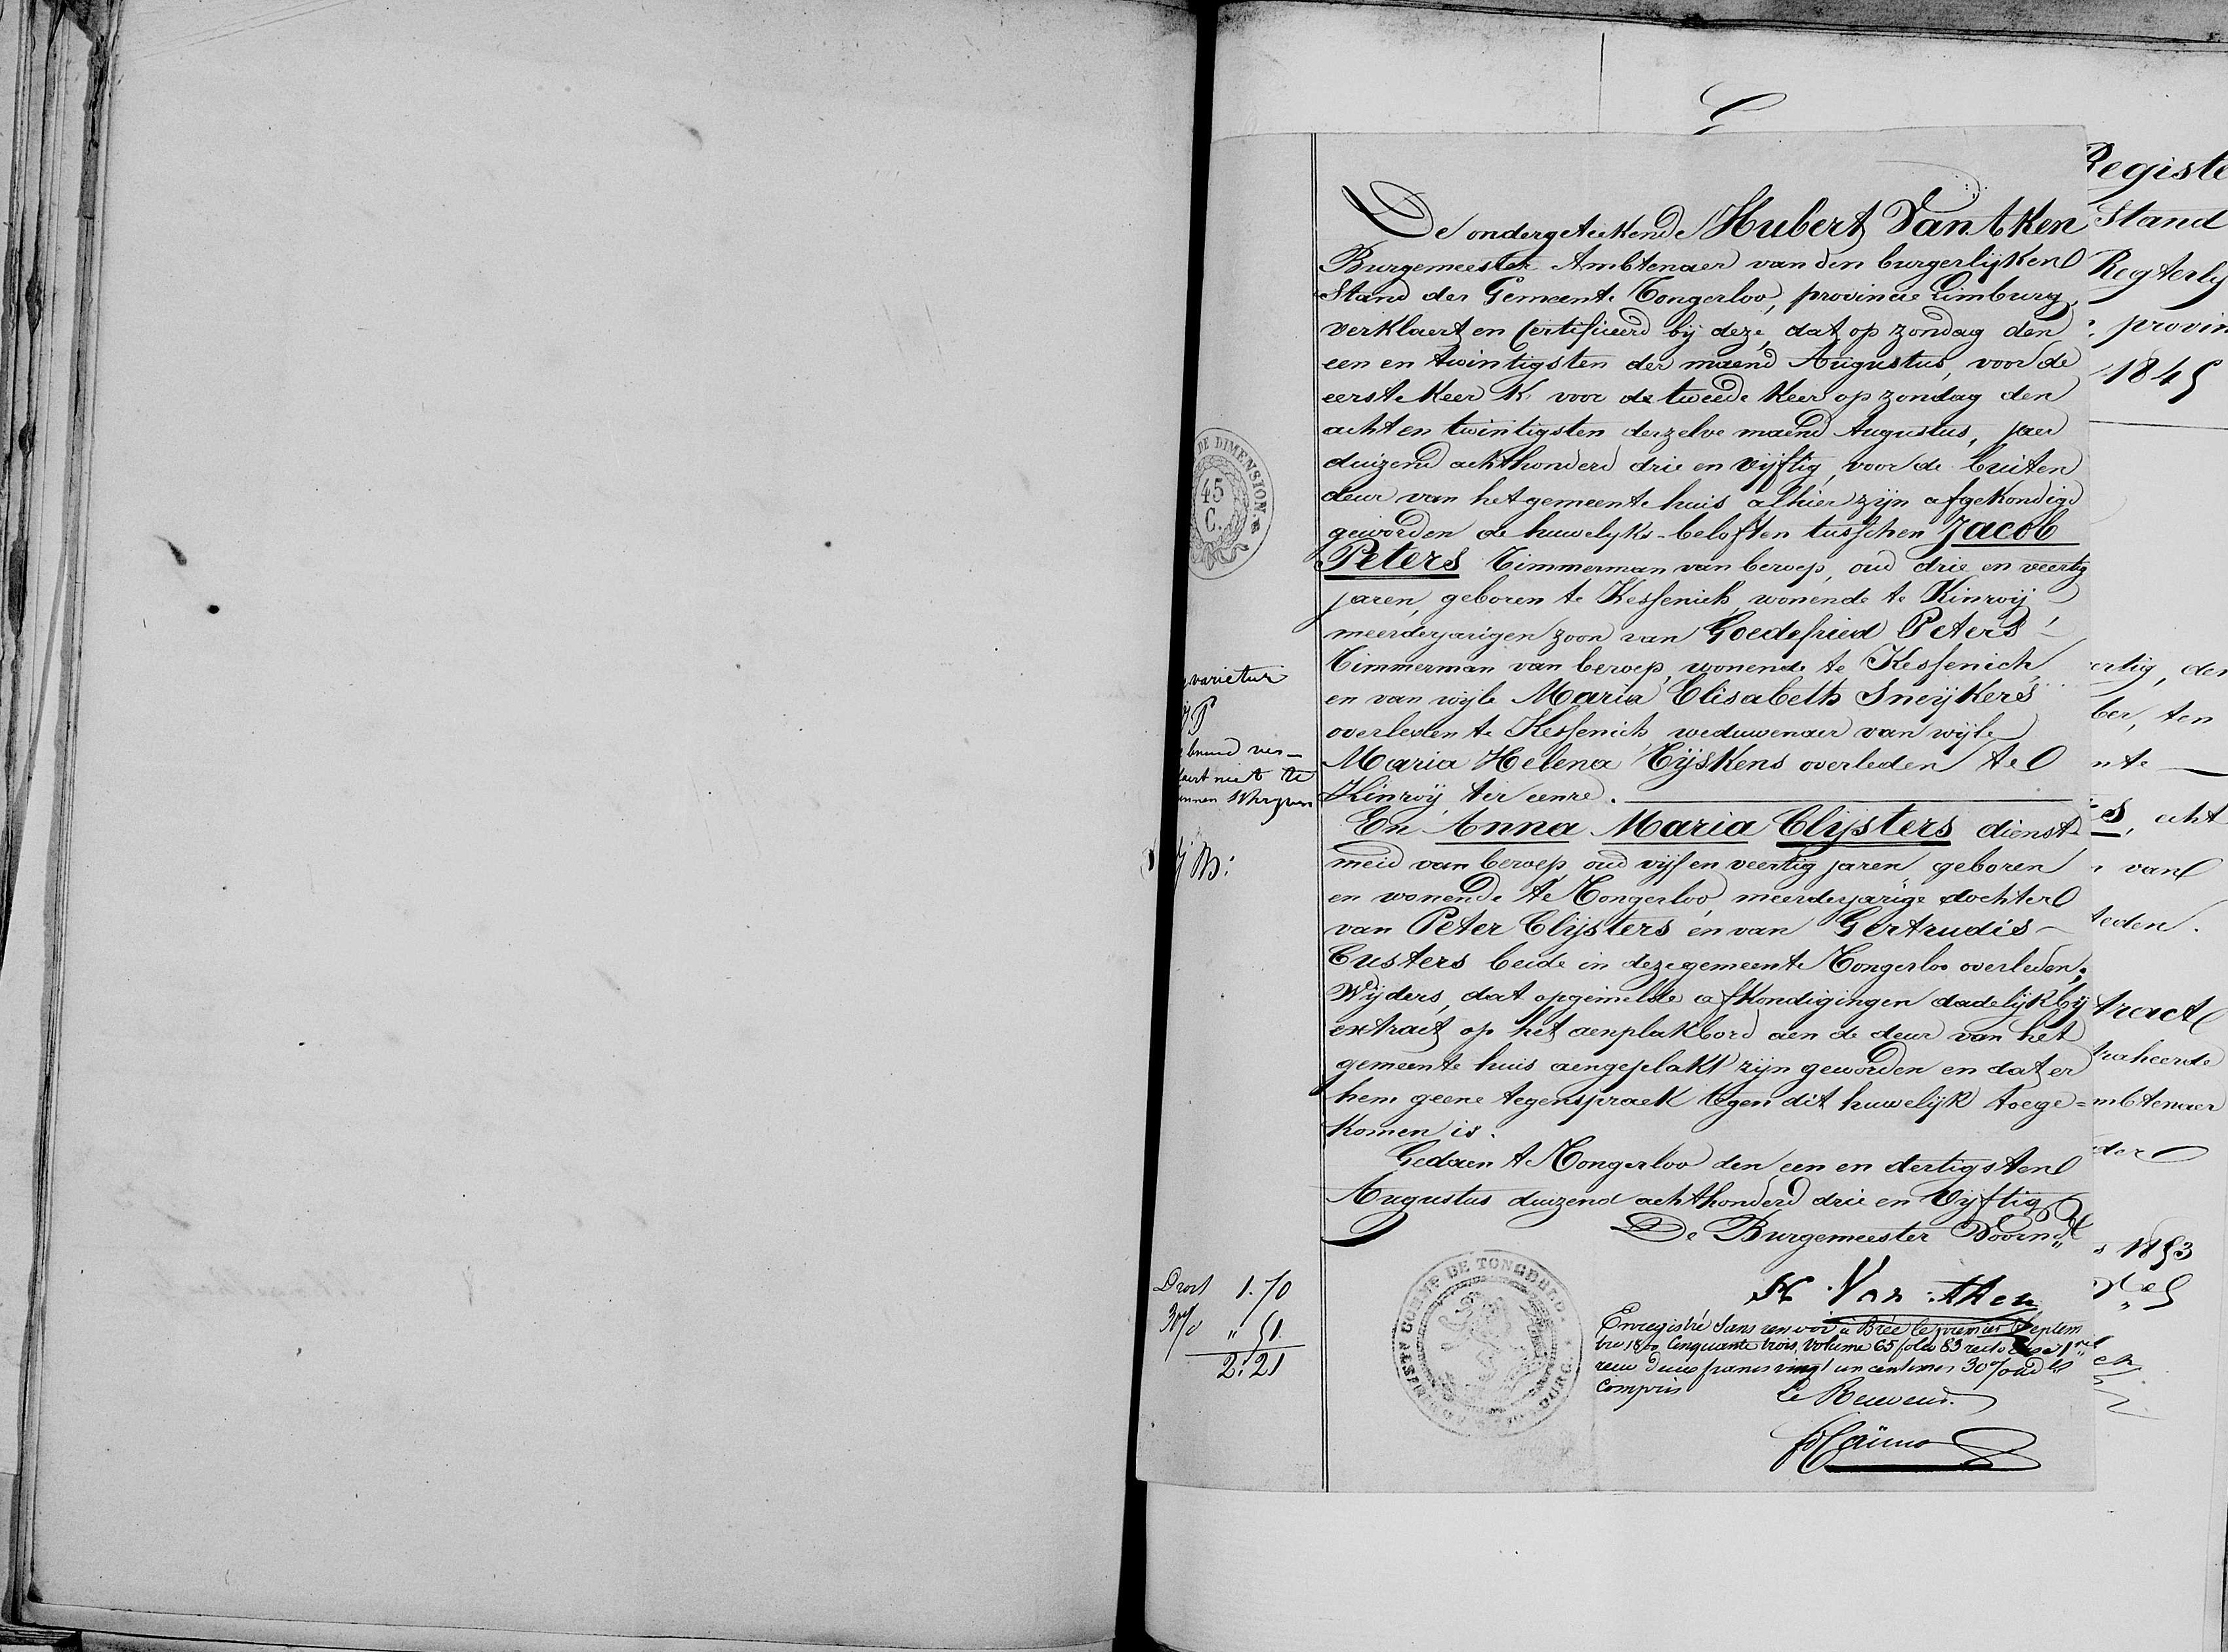 De ondergeteekende Hubert Van Aken
Burgemeester Ambtenaer van den burgerlijken
Stand der Gemeente Tongerloo, provincie Limburg,
verklaert en Certificeerd bij deze, dat op zondag den
een en twintigsten der maend Augustus, voor de
eerste keer & voor de tweede keer op zondag den
acht en twintigsten derzelve maend Augustus, jaer
duizend achthonderd drie en vijftig, voor de buiten
deur van het gemeente huis alhier zijn afgekondigd
geworden de huwelyks-beloften tusschen Jacob
Peters Timmerman van beroep, oud drie en veertig
jaren, geboren te Kessenich, wonende te Kinroij
meerderjarigen zoon van Goedefried Peters
Timmerman van beroep, wonende te Kessenich,
en van wijle Maria Elisabeth Sneijkers
overleden te Kessenich, weduwenaer van wijle
Maria Helena Tijskens overleden te
Kinroij, ter eenre.
En Anna Maria Clijsters dienst-
meid van beroep, oud vijf en veertig jaren, geboren
en wonende te Tongerloo, meerderjarige dochter
van Peter Clijsters en van Gertrudis
Custers beide in deze gemeente Tongerloo overleden;
Wijders, dat opgemelde afkondigingen dadelijk bij
extract op het aenplakbord aen de deur van het
gemeente huis aengeplakt zijn geworden en dat er
hem geene tegenspraek tegen dit huwelijk toege=
komen is.
Gedaen te Tongerloo den een en dertigsten
Augustus duizend achthonderd drie en vijftig
De Burgemeester Voornd
H Van Aken
Enregistré sans renvoi à Brée le premier Septem
bre 1800 Cinquante trois, volume 65 folio 83 recto Case 1re
reçu deux francs vingt un centimes 30% addls
Compris
Le Receveur.
DE DIMENSION.
45
C.
varietur
niet te
Droit 1.70
30% " 51
2.21
COMME DE TONGERLO.
Registe
Stand
Regterly
provin
1845
ertig, der
ber, ten
nte
es, echt
van
leden.
tract
traheerde
mbtenaer
der
1853